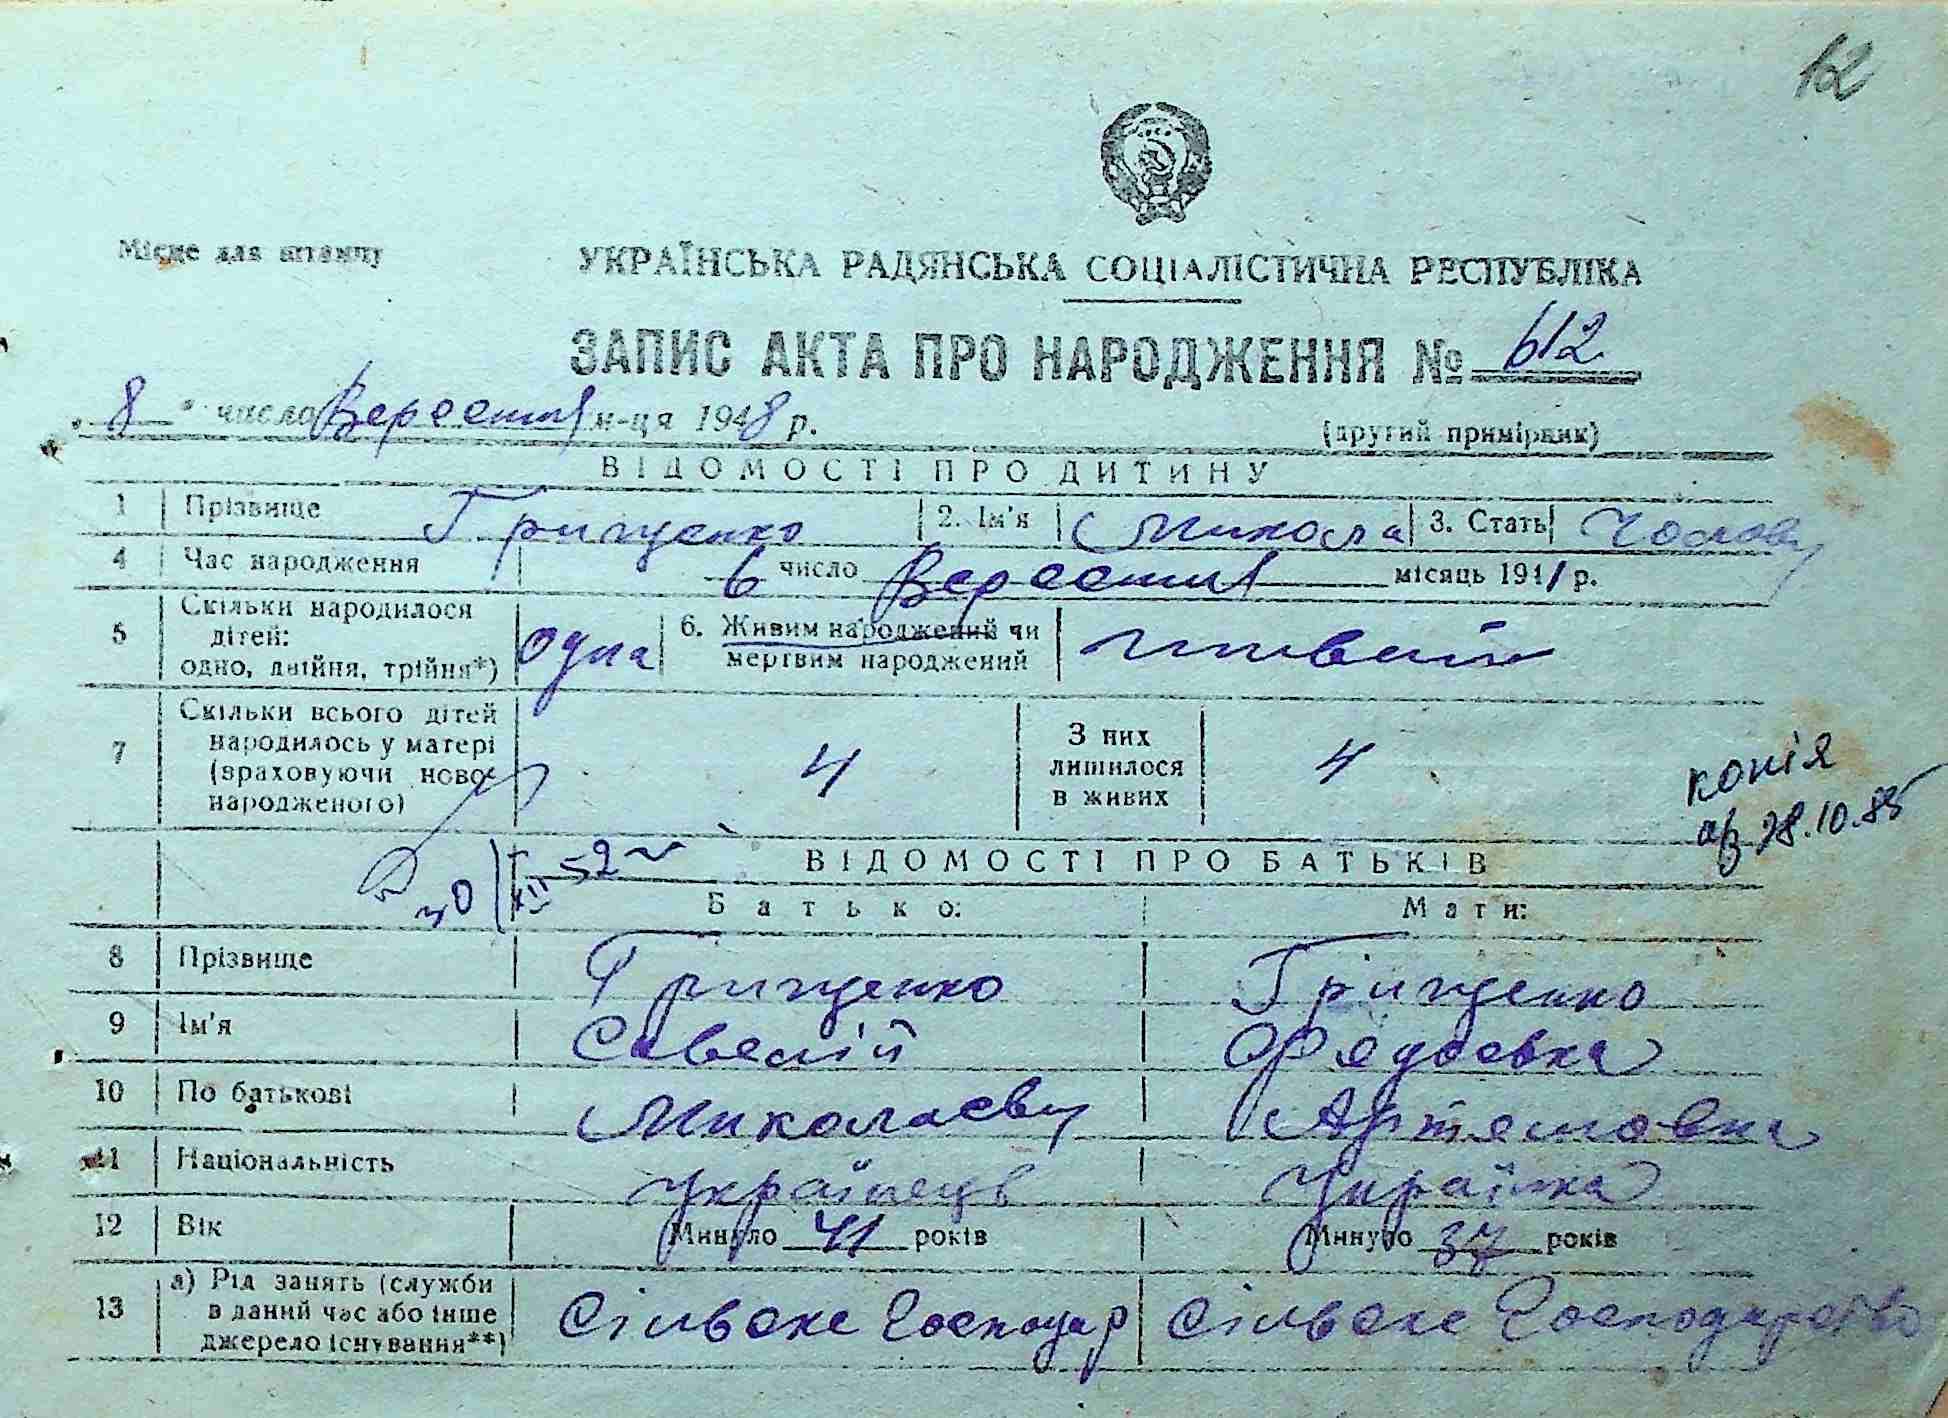 12
Місце для штампу
УКРАЇНСЬКА РАДЯНСЬКА СОЦІАЛІСТИЧНА РЕСПУБЛІКА
ЗАПИС АКТА ПРО НАРОДЖЕННЯ № 612
„ 8 " число Вересня м-ця 1948 р.
(другий примірник)
ВІДОМОСТІ ПРО ДИТИНУ
1 Прізвище Грищенко 2. Ім'я Микола 3. Стать Чолову
4 Час народження 6 число Вересня місяць 1941 р.
5 Скільки народилося дітей: одно, двійня, трійня*) одна 6. Живим народжений чи мертвим народжений живий
7 Скільки всього дітей народилось у матері (враховуючи новонародженого) 4 З них лишилося в живих 4
копія
28.10.85
30 XII 52
ВІДОМОСТІ ПРО БАТЬКІВ
Батько: Мати:
8 Прізвище Грищенко Грищенко
9 Ім'я Савелій Федосвка
10 По батькові Миколаєву Артемовна
11 Національність українець Українка
12 Вік Минуло 41 років Минуло 37 років
13 а) Рід занять (служби в даний час або інше джерело існування**) Сільське Господар Сільське Господарство